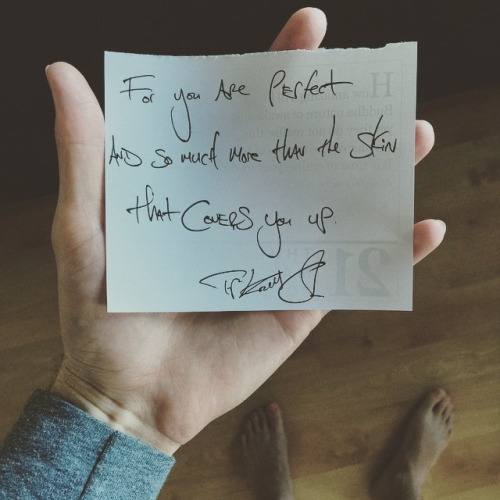 For you Are Perfect
AND So much more than the Skin
that Covers you up.